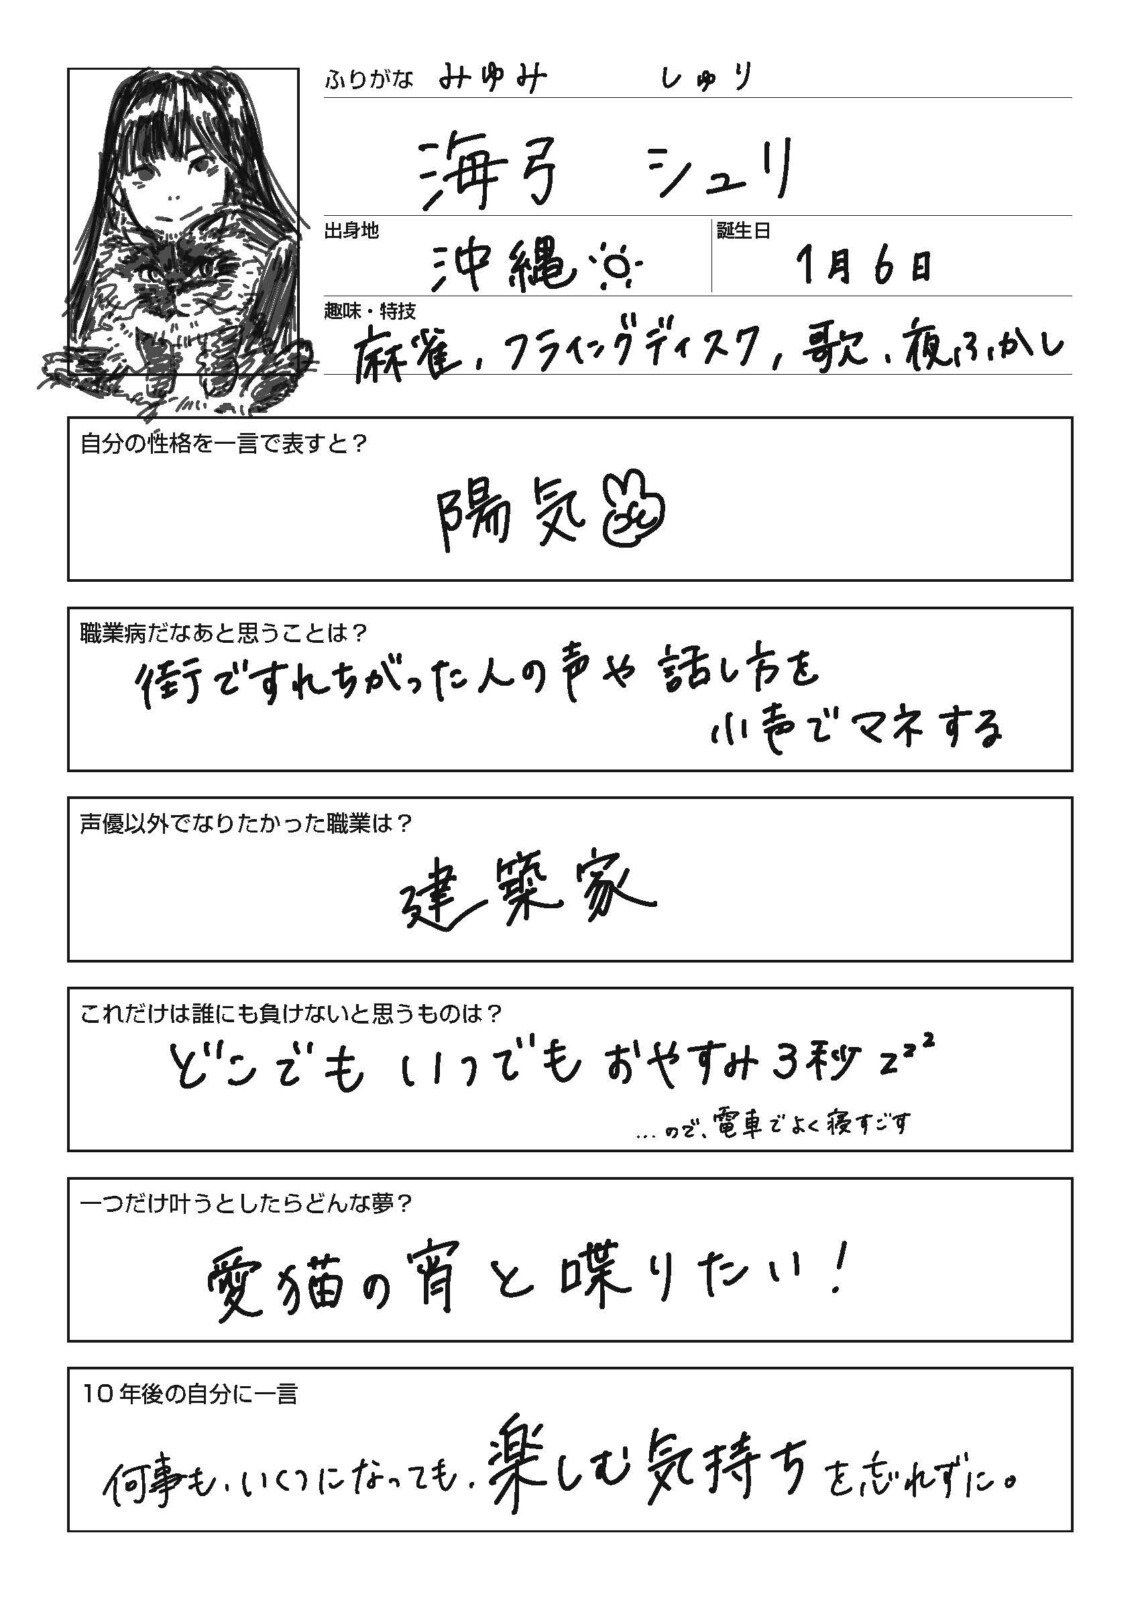 ふりがな みゆみ しゅり
海弓 シュリ
出身地 沖縄
誕生日 1月6日
趣味・特技
麻雀、フライングディスク、歌、夜ふかし
自分の性格を一言で表すと？
陽気
職業病だなあと思うことは？
街ですれちがった人の声や話し方を
小声でマネする
声優以外でなりたかった職業は？
建築家
これだけは誰にも負けないと思うものは？
どこでも いつでも おやすみ3秒 zzz
…ので、電車でよく寝すごす
一つだけ叶うとしたらどんな夢？
愛猫の宵と喋りたい！
10年後の自分に一言
何事も、いくつになっても、楽しむ気持ちを忘れずに。